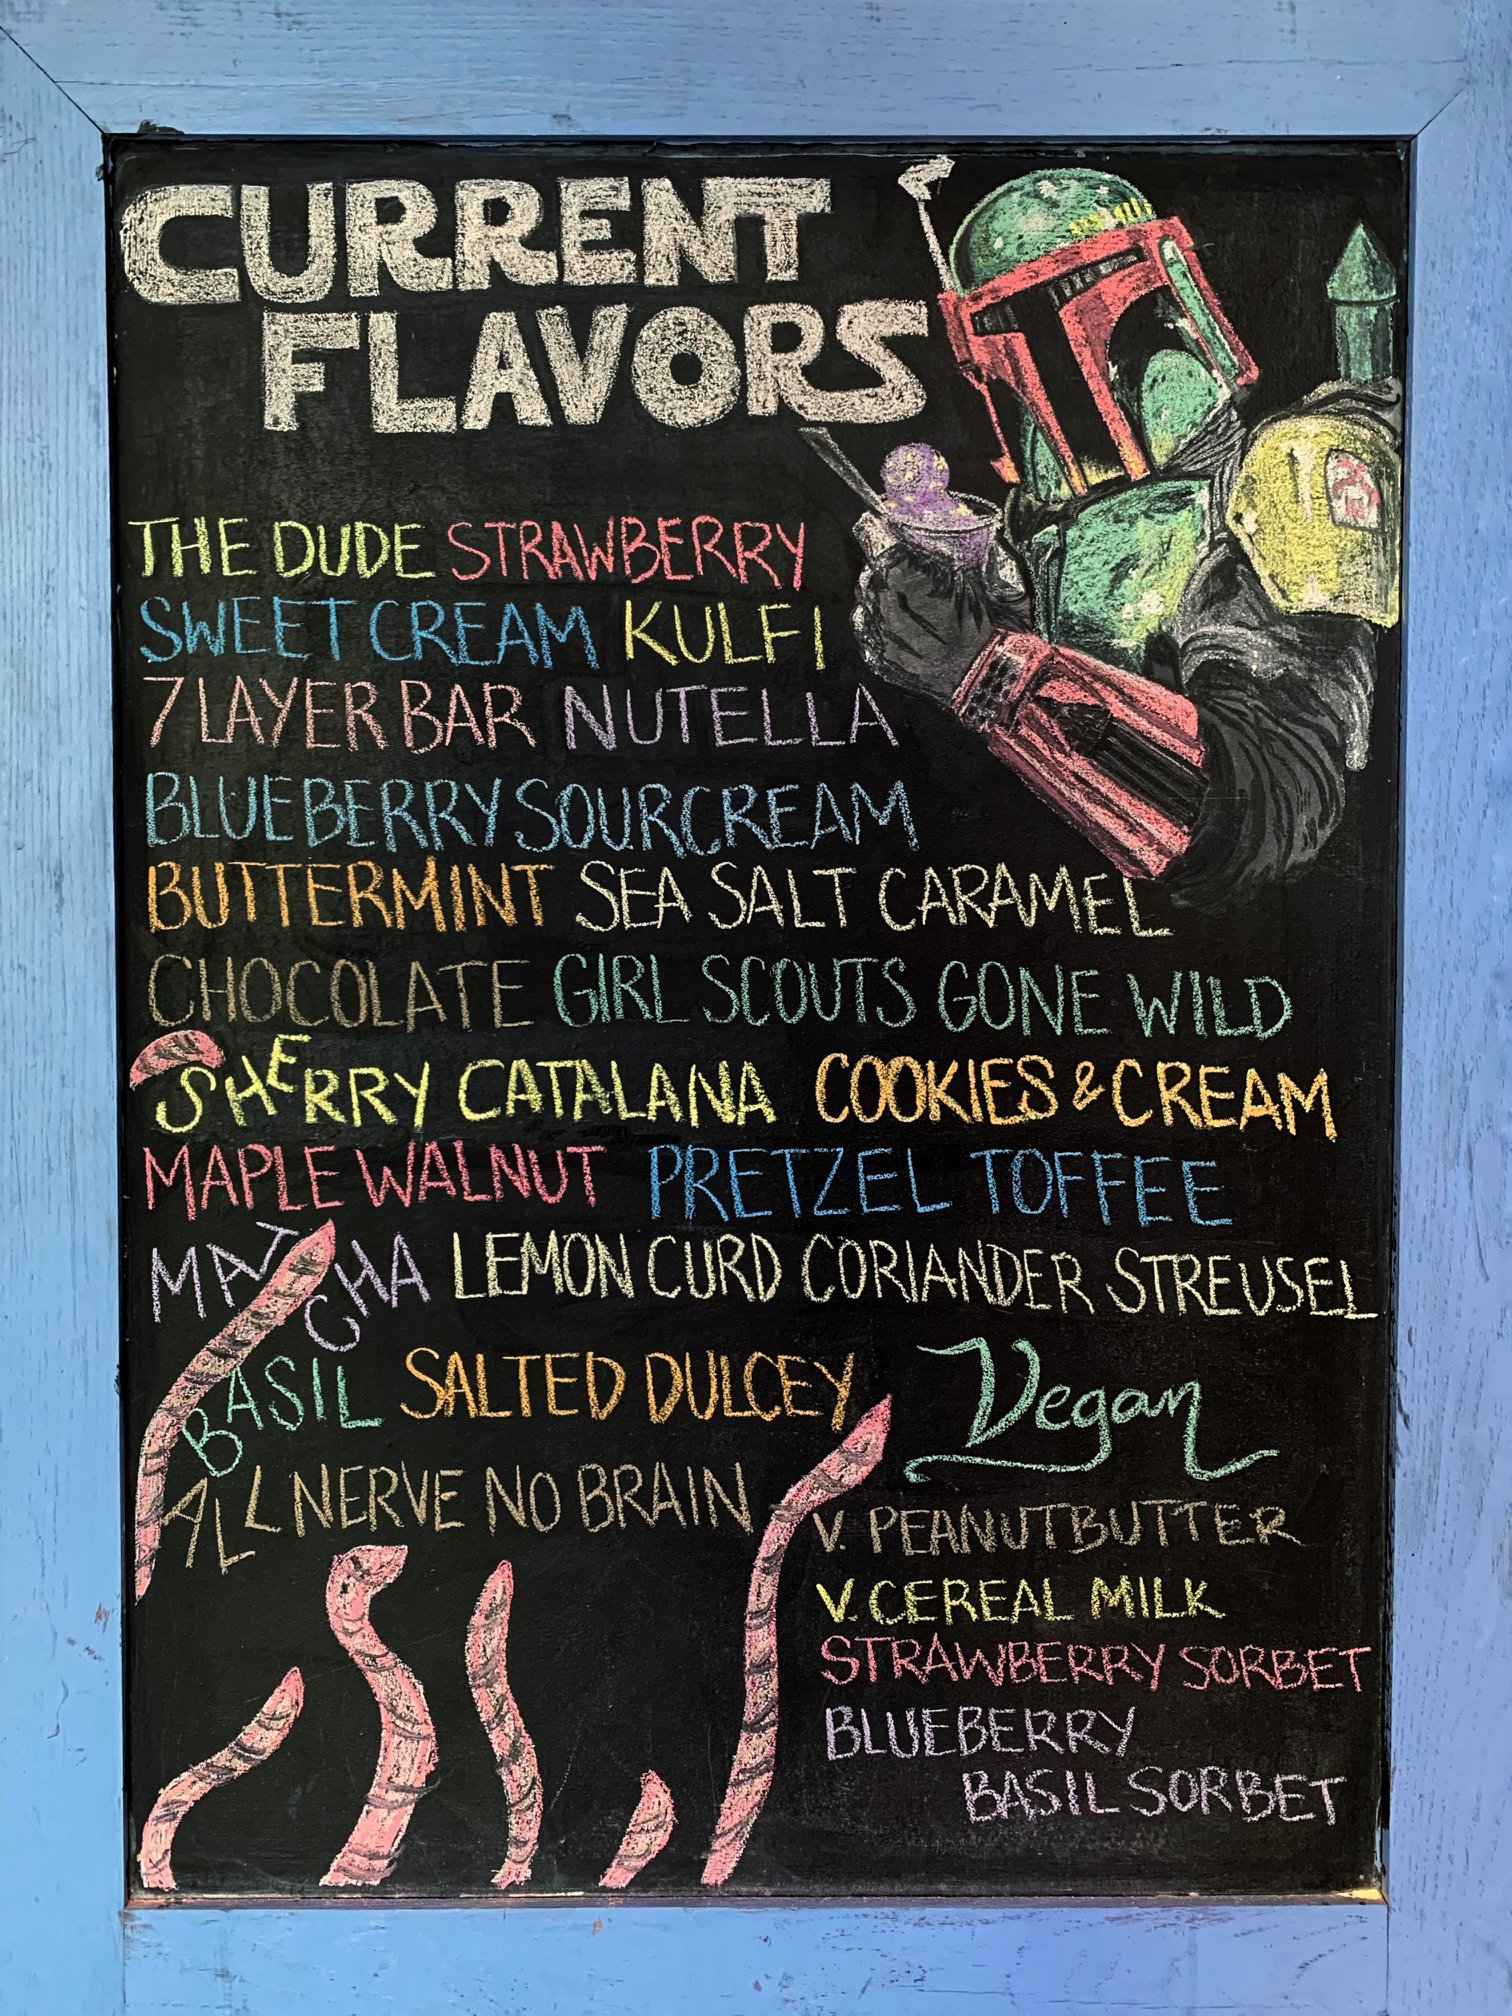 CURRENT
FLAVORS
THE DUDE STRAWBERRY
SWEET CREAM KULFI
7 LAYER BAR NUTELLA
BLUEBERRY SOUR CREAM
BUTTERMINT SEA SALT CARAMEL
CHOCOLATE GIRL SCOUTS GONE WILD
SHERRY CATALANA COOKIES & CREAM
MAPLE WALNUT PRETZEL TOFFEE
MATCHA LEMON CURD CORIANDER STREUSEL
BASIL SALTED DULCEY
ALL NERVE NO BRAIN
Vegan
V. PEANUTBUTTER
V. CEREAL MILK
STRAWBERRY SORBET
BLUEBERRY
BASIL SORBET